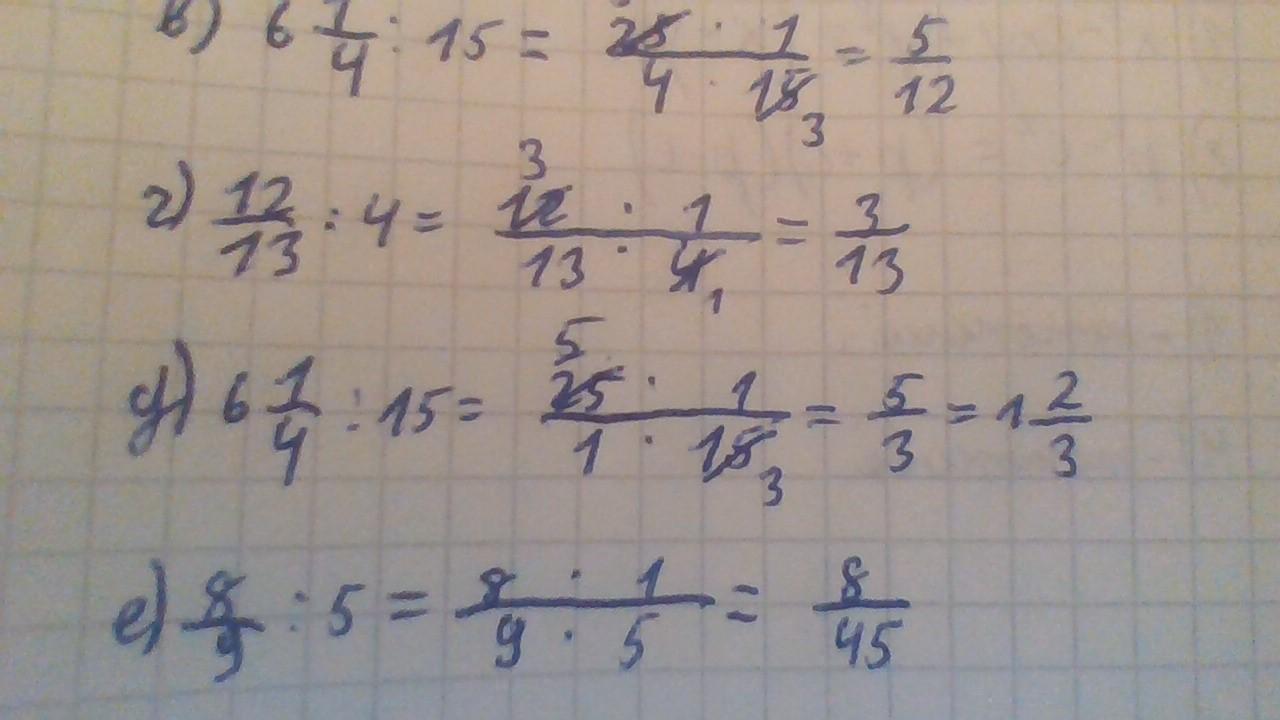 в) 6 1/4 : 15 = 25 · 1 / 4 · 15 3 = 5/12
г) 12/13 : 4 = 3 12 · 1 / 13 · 4 1 = 3/13
д) 6 1/4 : 15 = 5 25 · 1 / 1 · 15 3 = 5/3 = 1 2/3
е) 8/9 : 5 = 8 · 1 / 9 · 5 = 8/45